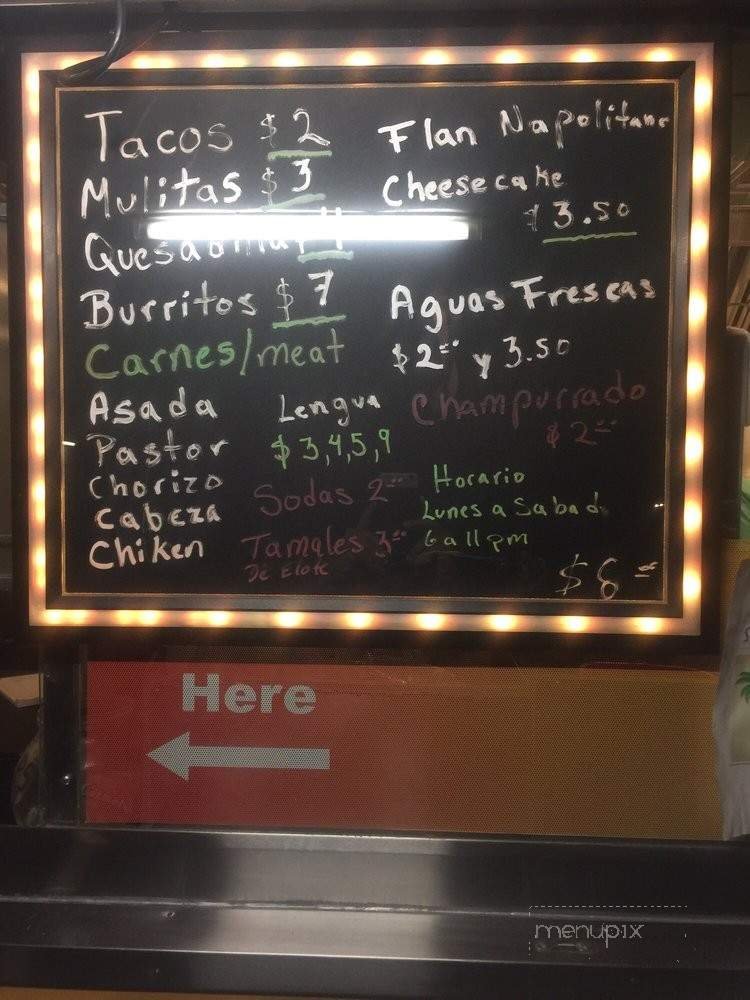 Tacos $2
Mulitas $3
Burritos $7
Carnes/meat
Asada
Pastor
Chorizo
Cabeza
Chiken
Lengua
$3,4,5,9
Sodas 2
Tamales 3
De Elote
Flan Napolitano
Cheesecake
$3.50
Aguas Frescas
$2 y 3.50
Champurrado
$2
Horario
Lunes a Sabado
6 a 11 pm
Here
menupix